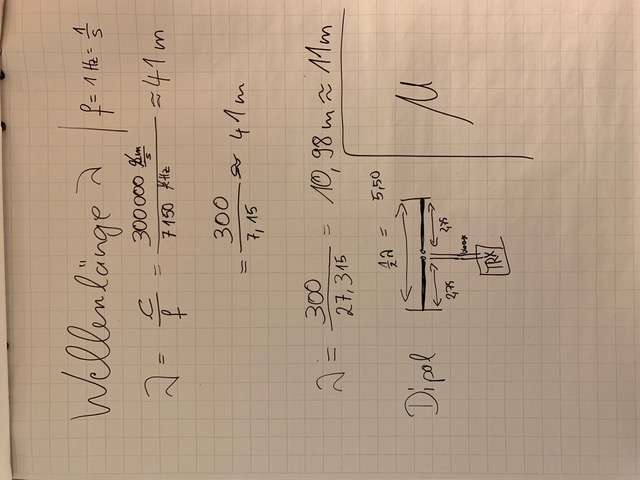 Wellenlänge λ | f = 1 Hz = 1/s
λ = c/f = 300000 km/s / 7150 kHz ≈ 41 m
= 300/7,15 ≈ 41 m
λ = 300/27,315 = 10,98 m ≈ 11 m
μ
Dipol
1/2 λ = 5,50
2,75 2,75
TRX